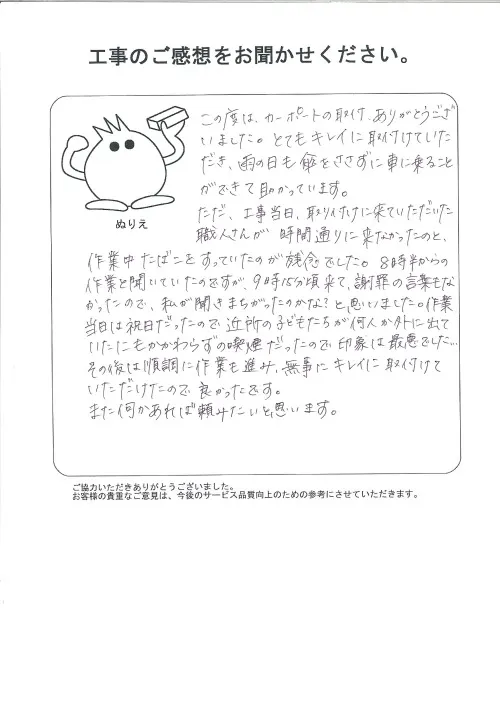 工事のご感想をお聞かせください。
この度は、カーポートの取付、ありがとうござ
いました。とてもキレイに取付けていた
だき、雨の日も傘をささずに車に乗ること
ができて助かっています。
ただ、工事当日、取り付けに来ていただいた
職人さんが時間通りに来なかったのと、
作業中たばこをすっていたのが残念でした。8時半からの
作業と聞いていたのですが、9時15分頃来て、謝罪の言葉もな
かったので、私が聞きまちがったのかな?と思いました。作業
当日は祝日だったので近所の子どもたちが何人か外に出て
いたにもかかわらずの喫煙だったので印象は最悪でした…
その後は順調に作業も進み、無事にキレイに取付けて
いただけたので良かったです。
また何かあれば頼みたいと思います。
ぬりえ
ご協力いただきありがとうございました。
お客様の貴重なご意見は、今後のサービス品質向上のための参考にさせていただきます。